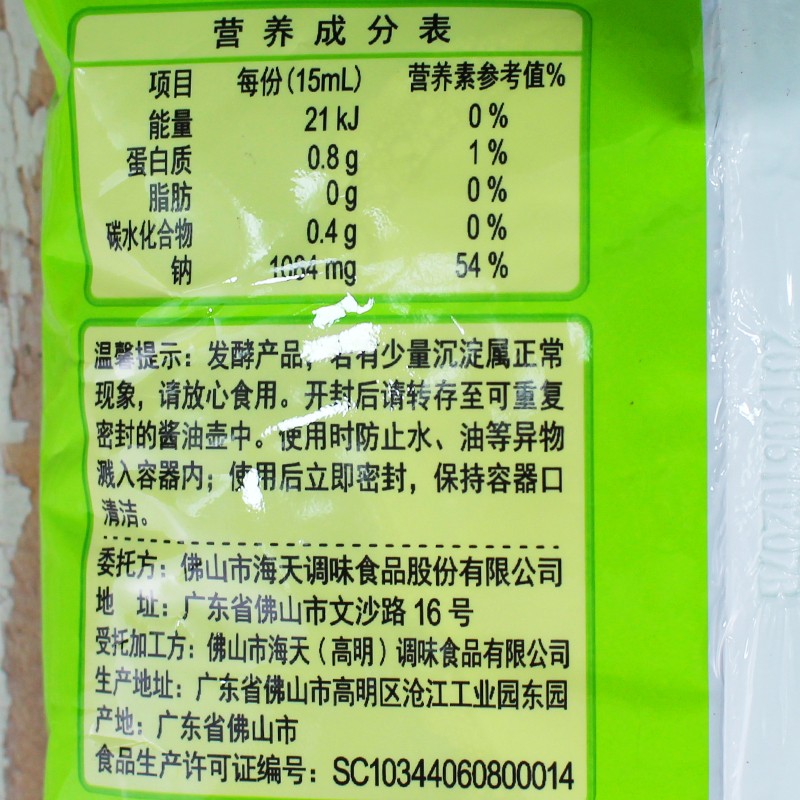 营养成分表
项目 每份(15mL) 营养素参考值%
能量 21 kJ 0 %
蛋白质 0.8 g 1 %
脂肪 0 g 0 %
碳水化合物 0.4 g 0 %
钠 1064 mg 54 %
温馨提示：发酵产品，若有少量沉淀属正常
现象，请放心食用。开封后请转存至可重复
密封的酱油壶中。使用时防止水、油等异物
溅入容器内；使用后立即密封，保持容器口
清洁。
委托方：佛山市海天调味食品股份有限公司
地 址：广东省佛山市文沙路 16 号
受托加工方：佛山市海天（高明）调味食品有限公司
生产地址：广东省佛山市高明区沧江工业园东园
产地：广东省佛山市
食品生产许可证编号：SC10344060800014